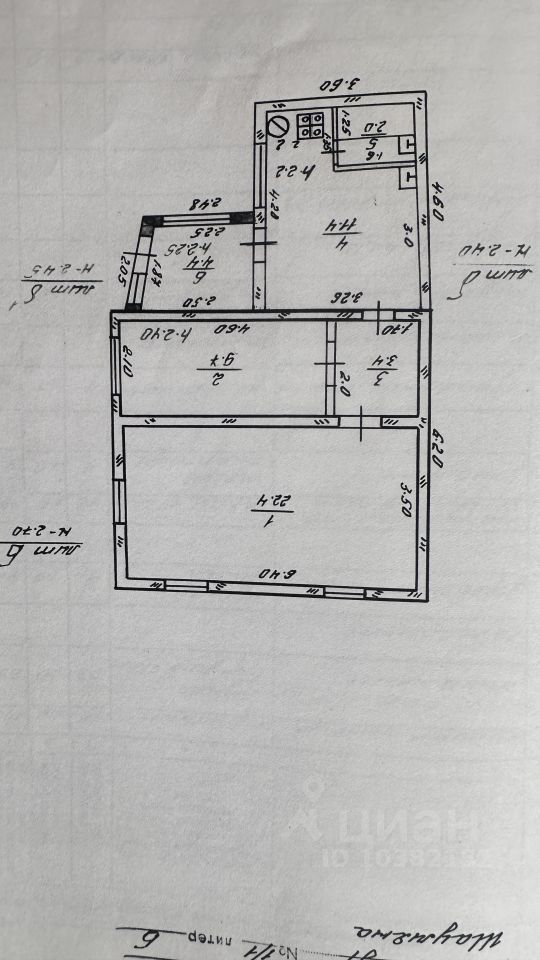 Шаумяна
№ 1/1 литер Б
6.40
1
22.4
3.50
6.20
лит Б
Н-2.70
3
3.4
2.0
1.70
2
9.7
2.10
h-2.40
4.60
3.26
2.50
лит б
Н-2.40
лит б1
Н-2.45
4
11.4
3.0
4.60
4.20
h-2.2
6
4.4
h-2.25
2.25
2.48
1.87
2.05
5
2.0
1.6
1.25
1.25
3.60
ЦИЭН